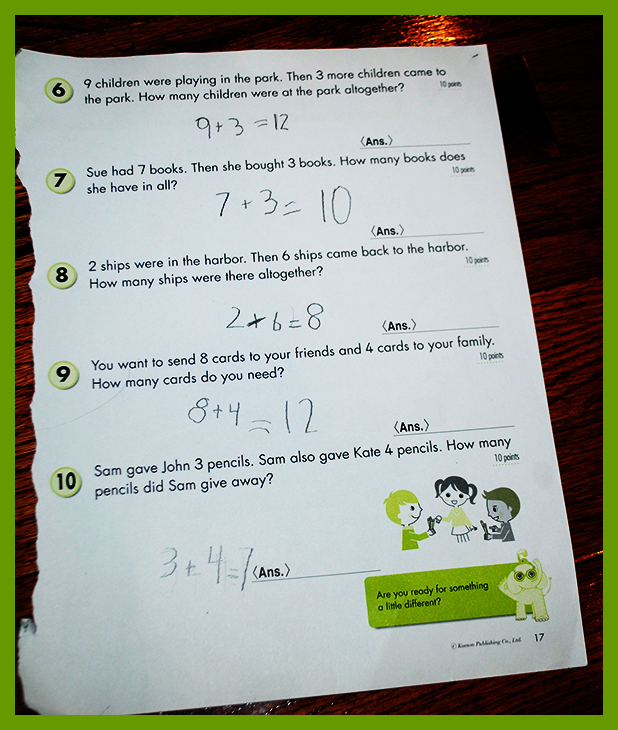 6 9 children were playing in the park. Then 3 more children came to
the park. How many children were at the park altogether?
10 points
9+3 =12
〈Ans.〉
7 Sue had 7 books. Then she bought 3 books. How many books does
she have in all?
10 points
7 + 3 = 10
〈Ans.〉
8 2 ships were in the harbor. Then 6 ships came back to the harbor.
How many ships were there altogether?
10 points
2+6=8
〈Ans.〉
9 You want to send 8 cards to your friends and 4 cards to your family.
How many cards do you need?
10 points
8+4 = 12
〈Ans.〉
10 Sam gave John 3 pencils. Sam also gave Kate 4 pencils. How many
pencils did Sam give away?
10 points
3+4=7
〈Ans.〉
Are you ready for something
a little different?
© Kumon Publishing Co., Ltd. 17